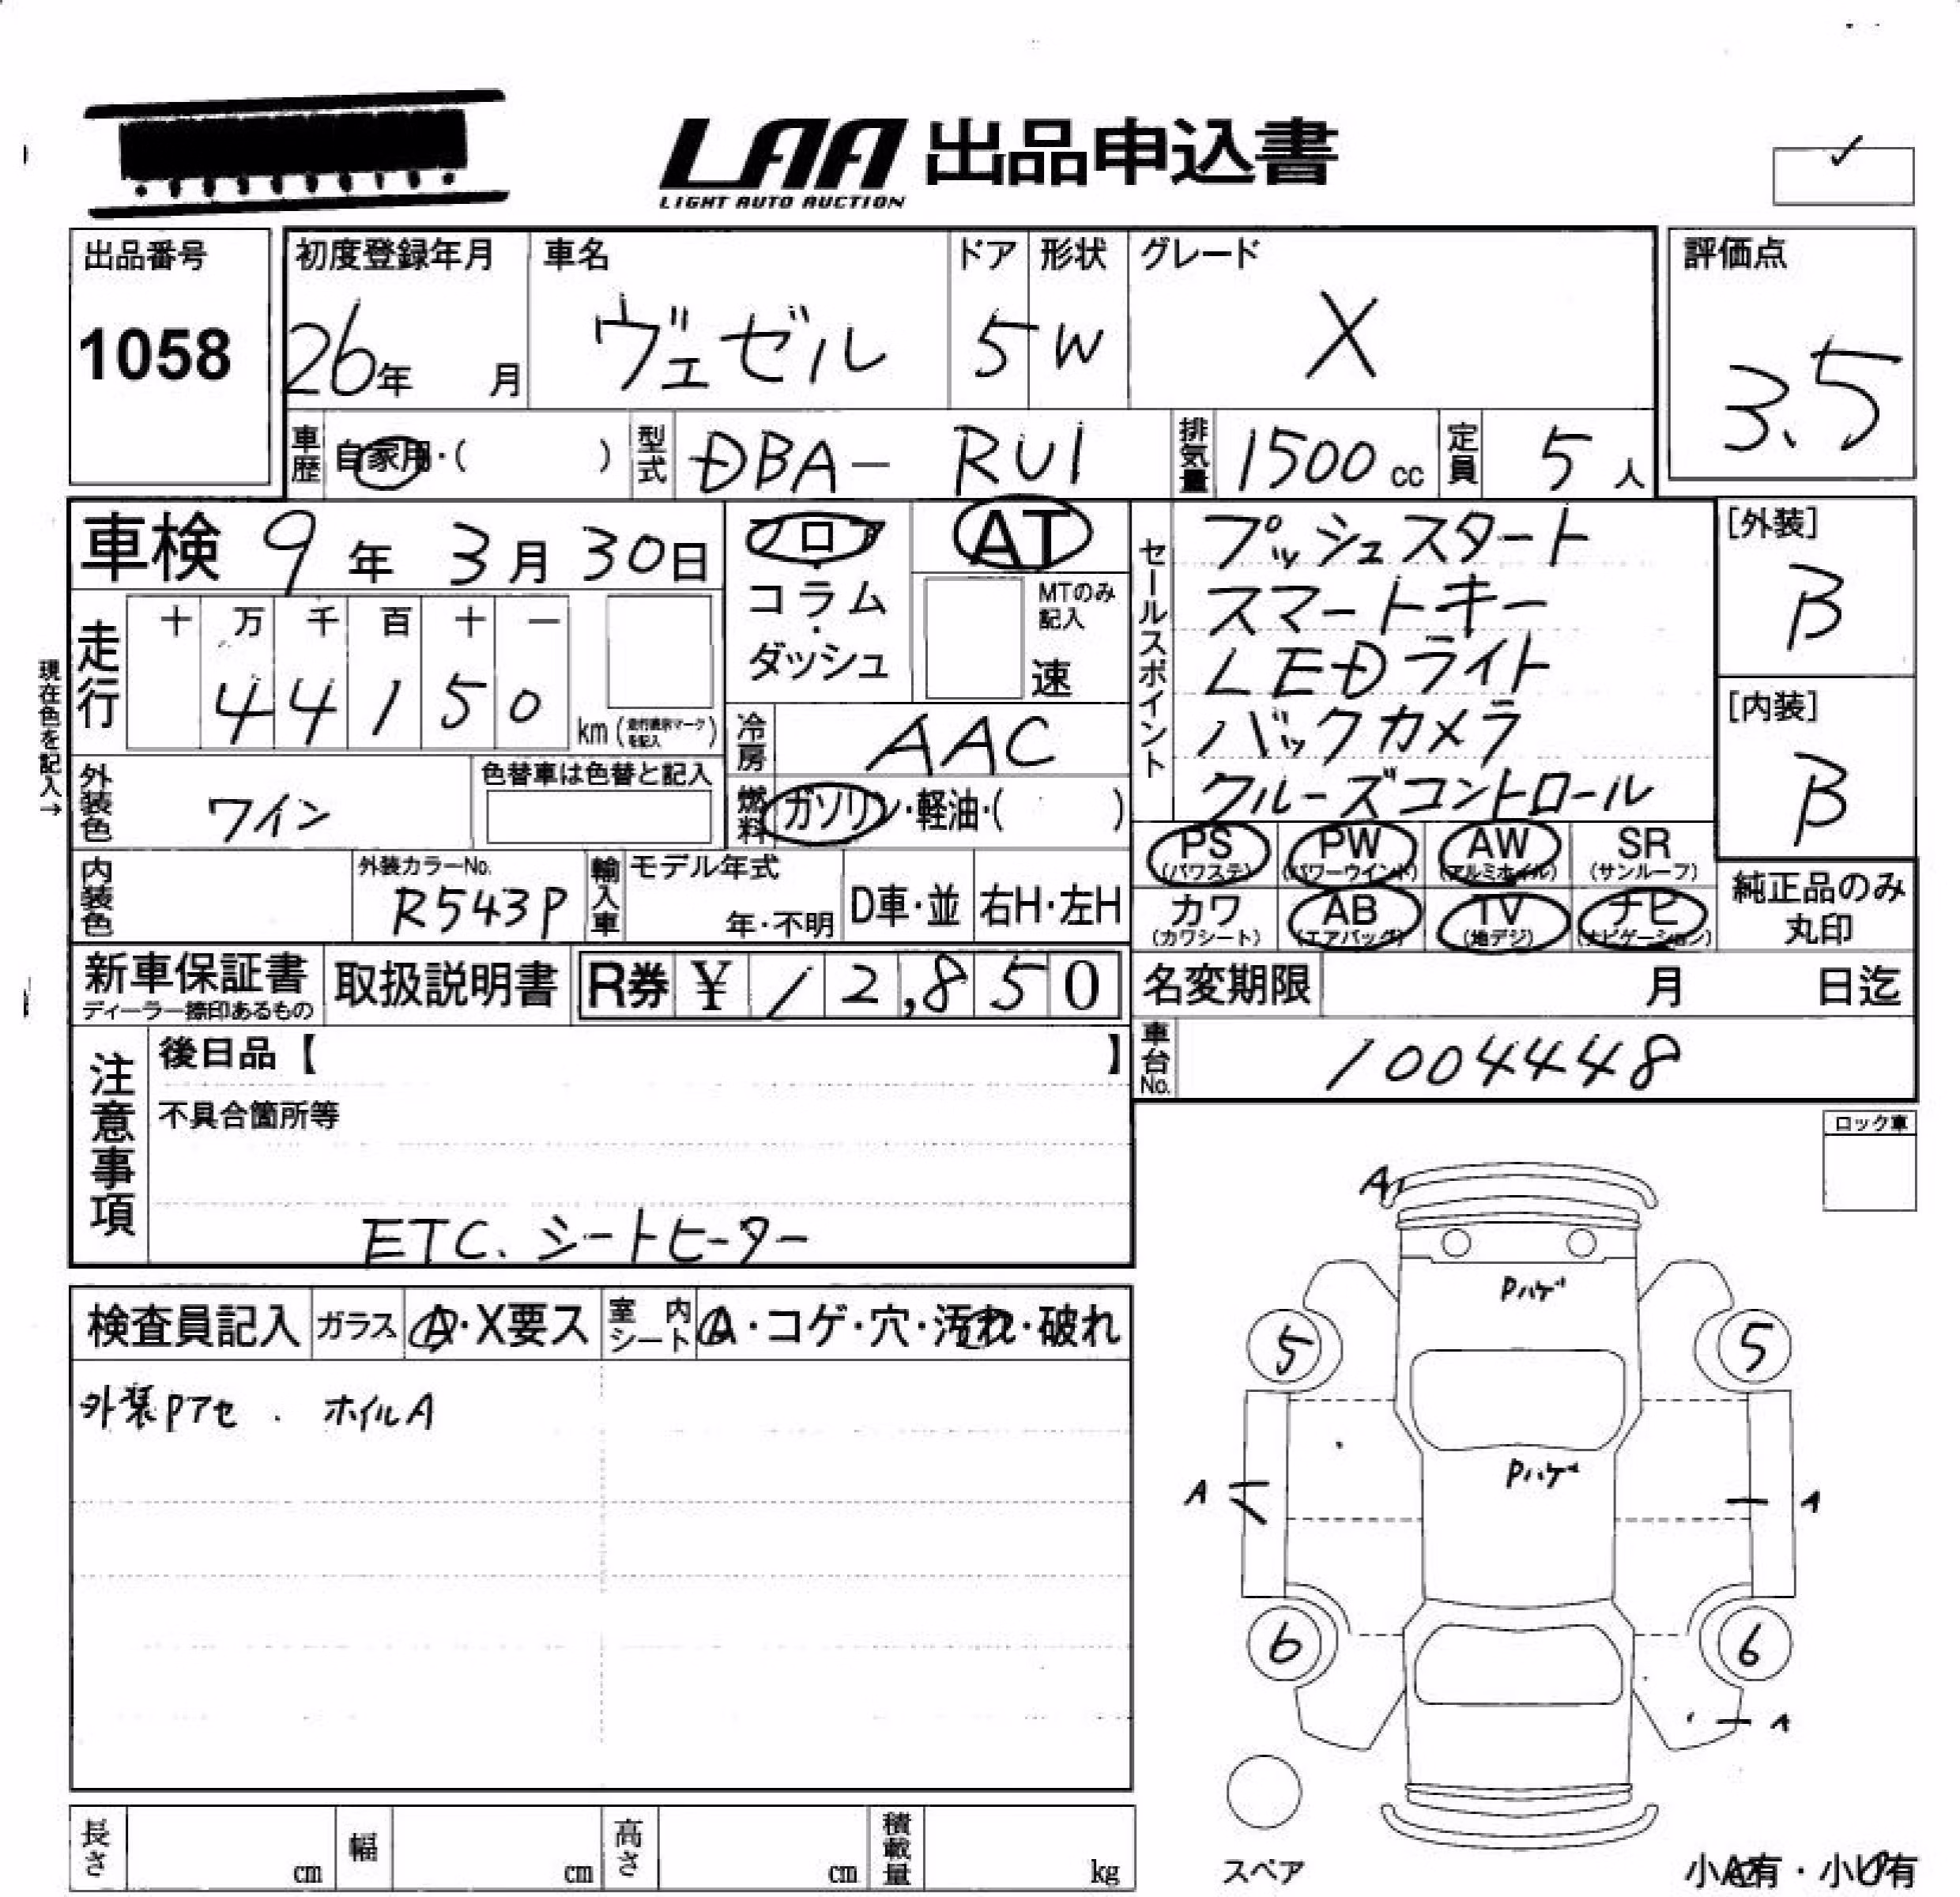 LAA 出品申込書
LIGHT AUTO AUCTION
出品番号
1058
初度登録年月
26年 月
車名
ヴェゼル
ドア
5
形状
W
グレード
X
評価点
3.5
車歴 自家用・( )
型式 DBA- RU1
排気量 1500cc
定員 5人
車検 9年 3月 30日
フロア
コラム
・
ダッシュ
AT
MTのみ
記入
速
セールスポイント
プッシュスタート
スマートキー
LEDライト
バックカメラ
クルーズコントロール
[外装]
B
[内装]
B
現在色を記入→
走行
十 万 千 百 十 一
4 4 1 5 0
km
冷房 AAC
燃料 ガソリン・軽油・( )
外装色 ワイン
色替車は色替と記入
内装色
外装カラーNo.
R543P
輸入車 モデル年式
年・不明
D車・並
右H・左H
PS (パワステ)
PW (パワーウインド)
AW (アルミホイル)
SR (サンルーフ)
カワ (カワシート)
AB (エアバッグ)
TV (地デジ)
ナビ (ナビゲーション)
純正品のみ
丸印
新車保証書
ディーラー捺印あるもの
取扱説明書
R券 ¥ 12,850
名変期限 月 日迄
車台No. 1004448
注意事項
後日品【 】
不具合箇所等
ETC. シートヒーター
ロック車
検査員記入
ガラス A・X要ス
室内シート A・コゲ・穴・汚れ・破れ
外装Pアセ . ホイルA
A
Pハゲ
5 5
Pハゲ
A A
6 6
A
スペア
小A有・小U有
長さ cm
幅 cm
高さ cm
積載量 kg